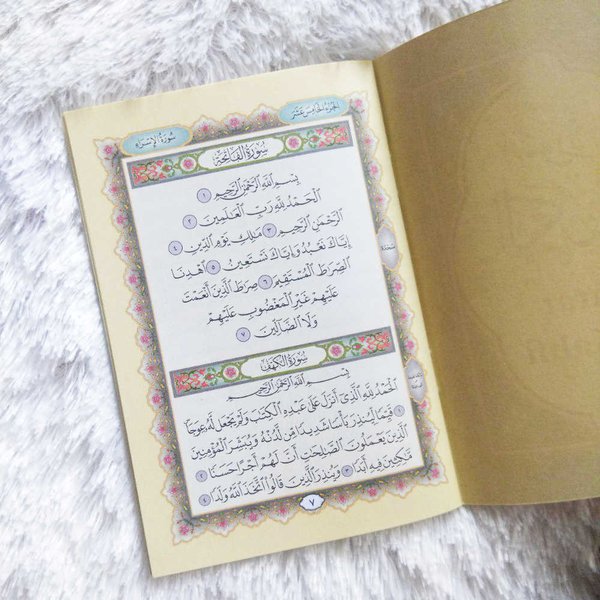 الجزء الخامس عشر
سورة الإسراء
سورة الفاتحة
بِسْمِ اللَّهِ الرَّحْمَٰنِ الرَّحِيمِ ١
الْحَمْدُ لِلَّهِ رَبِّ الْعَالَمِينَ ٢
الرَّحْمَٰنِ الرَّحِيمِ ٣ مَالِكِ يَوْمِ الدِّينِ ٤
إِيَّاكَ نَعْبُدُ وَإِيَّاكَ نَسْتَعِينُ ٥ اهْدِنَا
الصِّرَاطَ الْمُسْتَقِيمَ ٦ صِرَاطَ الَّذِينَ أَنْعَمْتَ
عَلَيْهِمْ غَيْرِ الْمَغْضُوبِ عَلَيْهِمْ
وَلَا الضَّالِّينَ ٧
سورة الكهف
بِسْمِ اللَّهِ الرَّحْمَٰنِ الرَّحِيمِ
الْحَمْدُ لِلَّهِ الَّذِي أَنْزَلَ عَلَىٰ عَبْدِهِ الْكِتَٰبَ وَلَمْ يَجْعَلْ لَهُ عِوَجًا
١ قَيِّمًا لِيُنْذِرَ بَأْسًا شَدِيدًا مِنْ لَدُنْهُ وَيُبَشِّرَ الْمُؤْمِنِينَ
الَّذِينَ يَعْمَلُونَ الصَّٰلِحَٰتِ أَنَّ لَهُمْ أَجْرًا حَسَنًا ٢
مَٰكِثِينَ فِيهِ أَبَدًا ٣ وَيُنْذِرَ الَّذِينَ قَالُوا اتَّخَذَ اللَّهُ وَلَدًا ٤
٧
سجدة